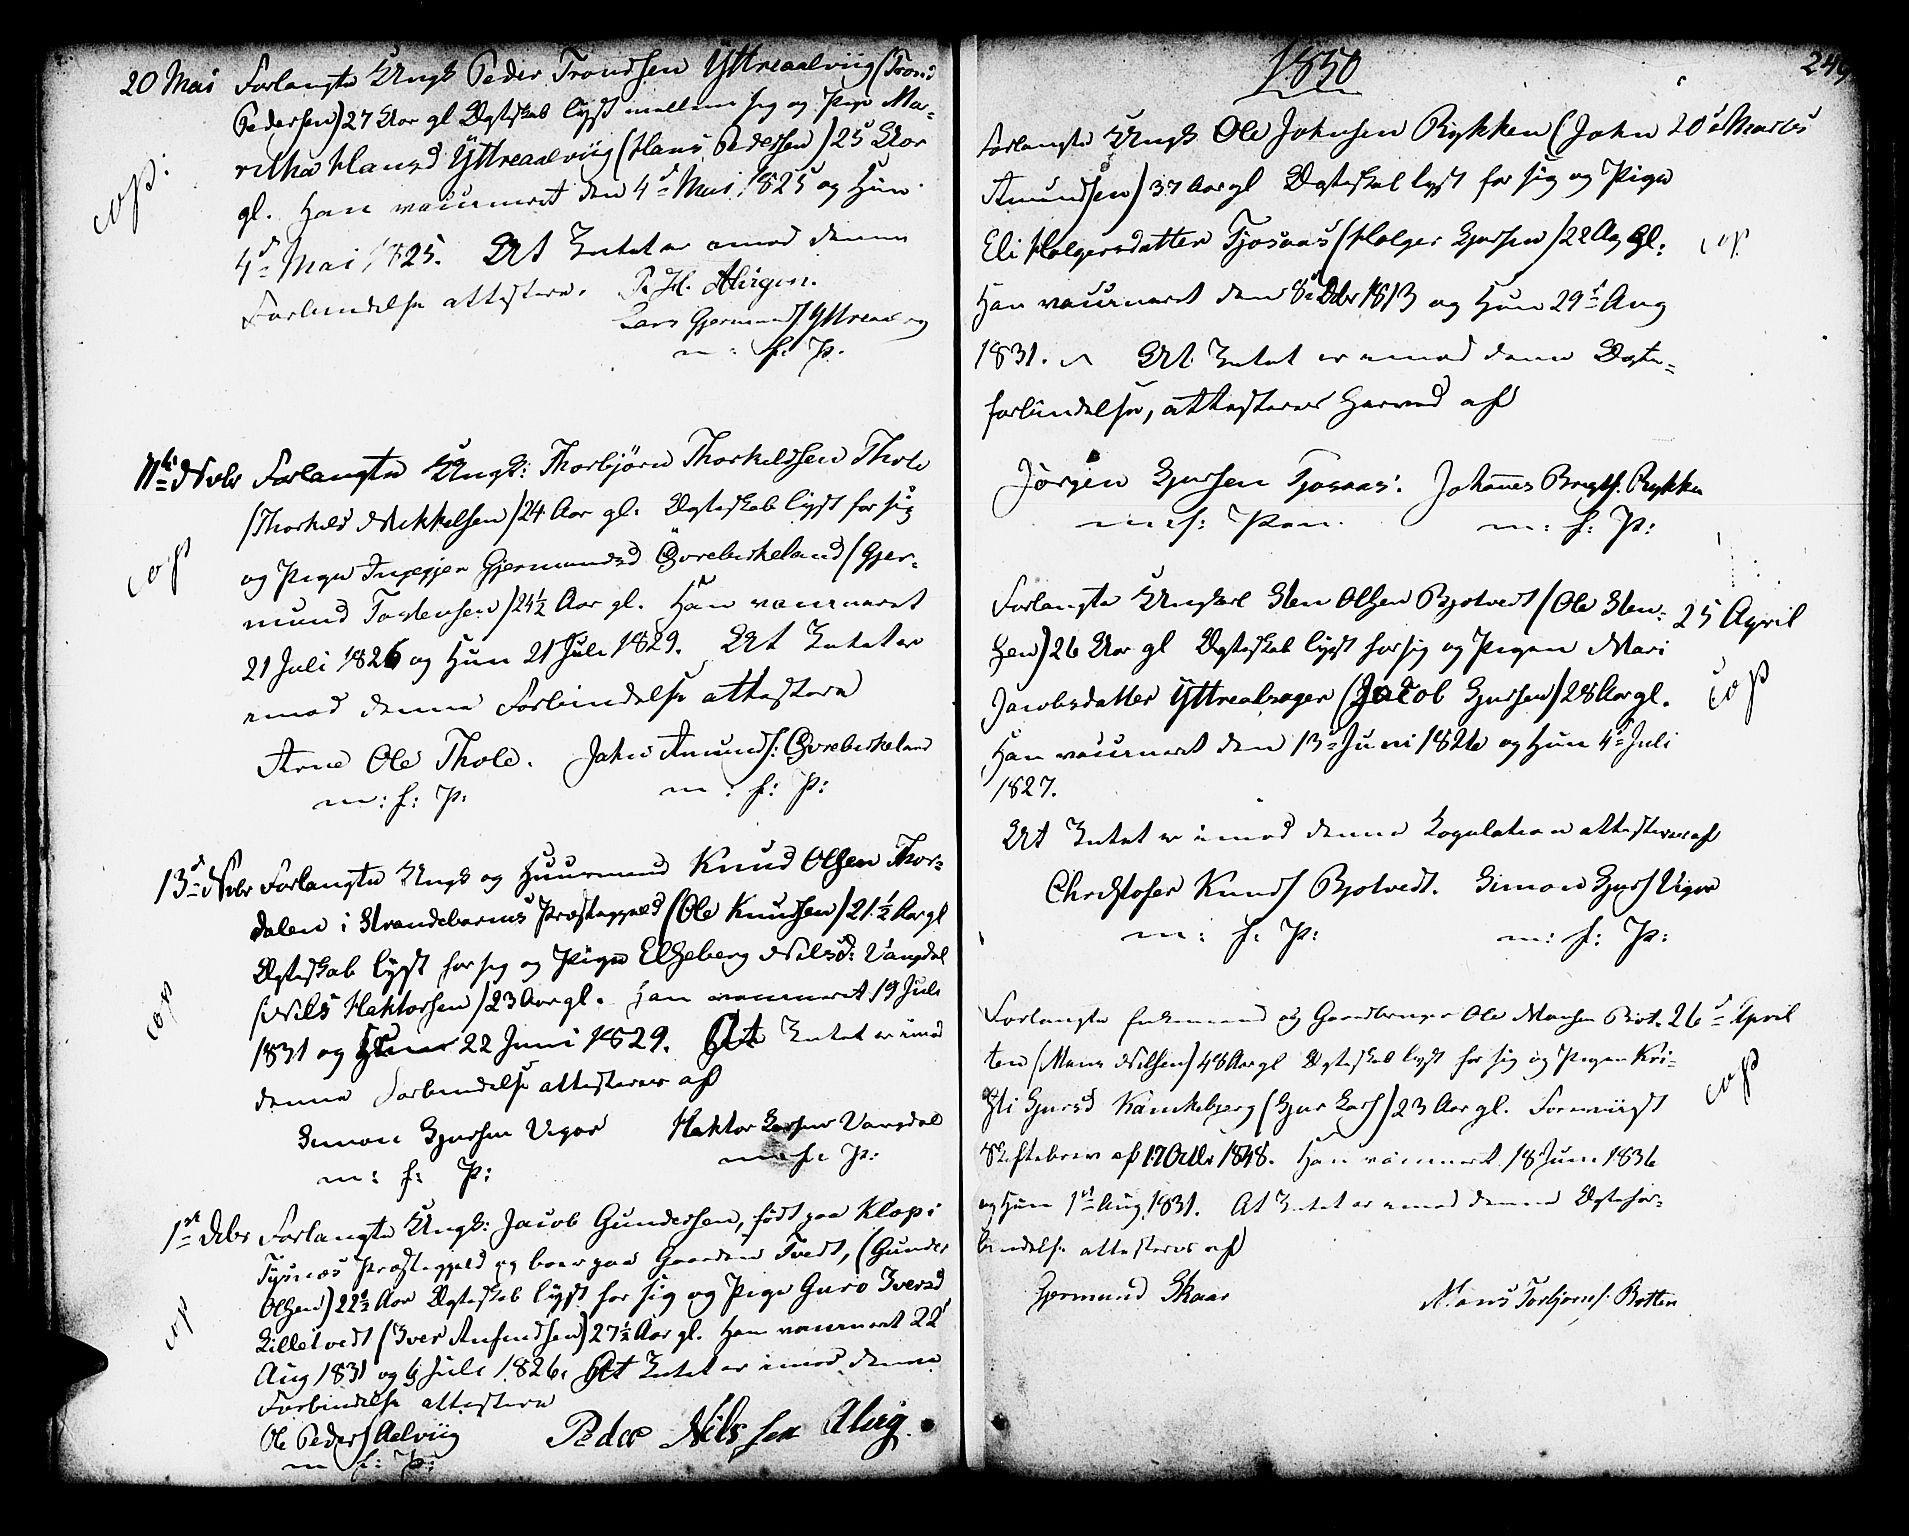 20 Mai Forlangte Ungk Peder Trondsen Yttreaalviig (Trond
Pedersen) 27 Aar gl Ægteskab lyst mellem sig og Pige Ma-
ritha Hansd Yttreaalviig (Hans Pedersen) 25 Aar
cop:
gl. Han vaccineret den 4d Mai 1825 og Hun
4d Mai 1825. At Intet er imod denne
Forbindelse attestere. P. H. Alvigen.
Lars Gjermunds Yttreaalvig
m: f: P.
11te Novbr Forlangte Ungk: Thorbjörn Thorkeldsen Thole
(Thorkeld Mikkelsen) 24 Aar gl. Ægteskab lyst for sig
cop
og Pigen Ingegjer Gjermundsd Øvrebirkeland (Gjer-
mund Tostensen) 24½ Aar gl. Han vaccineret
21 Juli 1826 og Hun 21 Juli 1829. At Intet er
imod denne Forbindelse attestere
Arne Ols Thole. John Amunds: Øvrebirkeland
m: f: P: m: f: P:
13d Novbr Forlangte Ungk og Huusmand Knud Olsen Thor-
dalen i Strandebarms Præstegjeld (Ole Knudsen) 21½ Aar gl
Ægteskab lyst for sig og Pigen Elsebeg Nilsd: Vangdal
(Nils Haktorsen) 23 Aar gl. Han vaccineret 19 Juli
cop
1831 og Hun 22 Juni 1829. At Intet er imod
denne Forbindelse attesteres af
Simon Sjursen Vigør Haktor Larsen Vangdal
m: f: P: m: f: P:
1st Debr Forlangte Ungk: Jacob Gundersen, født paa Klop i
Tysnæs Præstegjeld og boer paa Gaarden Tvedt, (Gunder
Olsen) 22½ Aar Ægteskab lyst for sig og Pige Guro Iversd
cop
Lilletvedt (Iver Anfindsen) 27½ Aar gl. Han vaccineret 22d
Aug 1831 og 6 Juli 1826. At Intet er imod denne
Forbindelse attestere
Ole Peders Aalviig Peder Nilssen Alvig.
m f: P:
1850
249
Forlangte Ungk Ole Johnsen Rykken (John 20d Marts
Amundsen) 37 Aar gl Ægteskab lyst for sig og Pigen
Eli Holgersdatter Tjosaas (Holger Sjursen) 22 Aar Gl. cop.
Han vaccineret den 8d Debr 1813 og Hun 29d Aug
1831. At Intet er imod denne Ægte-
forbindelse, attesteres herved af
Jörgen Sjursen Tjosaas. Johannes Brigts. Rykken
m: f: Pen. m: f: P:
Forlangte Ungkarl Sten Olsen Bjotvedt (Ole Sten- 25 April
sen) 26 Aar gl Ægteskab lyst for sig og Pigen Mari
Jacobsdatter Yttrealsager (Jacob Sjursen) 28 Aar gl. cop
Han vaccineret den 13d Juni 1826 og Hun 4d Juli
1827.
At Intet er imod denne Copulation attesteres af
Christofer Knuds Bjotvedt. Simon Sjurs Vigør
m: f: P: m: f: P:
Forlangte Enkemand og Gaardbruger Ole Monsen Bot- 26d April
ten (Mons Nilsen) 48 Aar gl Ægteskab lyst for sig og Pigen Kri-
sti Sjursd Kankebjerg (Sjur Lars) 23 Aar gl. Foreviist
cop
Skiftebrev af 17 Octbr 1848. Han vaccineret 18 Juni 1836
og Hun 1st Aug 1831. At Intet er imod denne Ægtefor-
bindelse attesteres af
Gjermund Skaar Mons Torbjørns: Botten